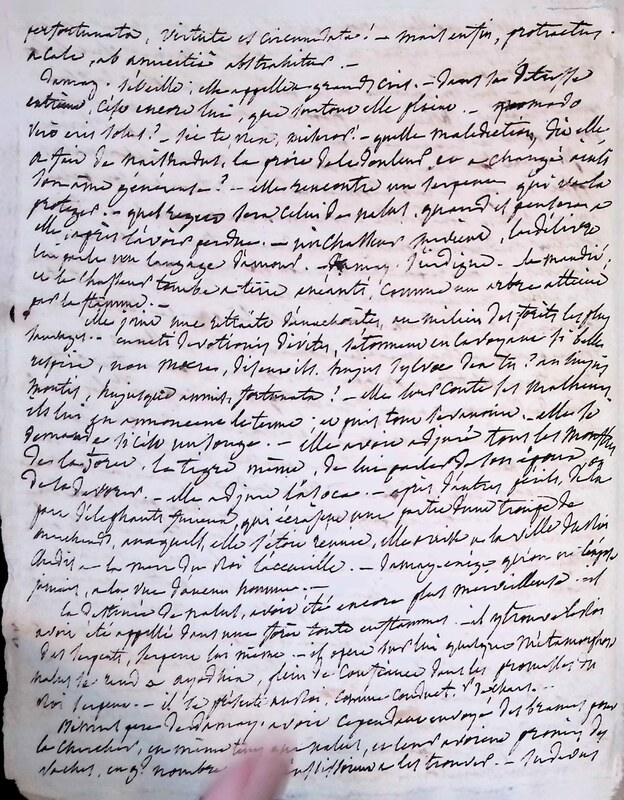 perfortunata, virtute es circumdata! - mais enfin, protractus
a cale, ab amicitiâ abstrahitur. -
Damay. s'éveille; elle appelle a grands cris. - Dans sa détresse
extrême, c'est encore lui, que surtout elle plaint. - quomodo
vero eris solus? - sic te non, miseros! - quelle malediction, dit elle
de nalus, la proie de la douleur, a changé ainsi
son âme généreuse? - elle rencontre un serpent, qui va la
protéger. - quel regret sera celui de nalus, quand il pensera a
elle, après l'avoir perdue. - un chasseur survient, la délivre
lui parle un langage d'amour. - Damay. s'indigne. - le maudit;
et le chasseur tombe a terre anéanti, comme un arbre atteint
par la flamme. -
elle joint une retraite d'anachorètes, au milieu des forêts les plus
sauvages. - ces dévots hermites, s'étonnent en la voyant si belle
respire, non moeres, disent ils. hujus sylvae dea tu? an hujus
montis, hujusque amnis, fortunata? - elle leur conte ses malheurs,
ils lui en annoncent le terme; et puis tout s'évanouit. - elle se
demande si c'est un songe. - elle avait adjuré tous les monstres
de la forêt, le tigre même, de lui parler de son époux, ou
de la dévorer. - elle adjure l'asoca. - après d'autres périls, de la
part d'éléphants furieux, qui écrasent une partie d'une troupe de
marchands, auxquels, elle s'étoit réunie, elle arrive a la ville du roi
chedis. - la mère du roi l'accueille. - Damay. exige qu'on ne l'expose
jamais, a la vue d'aucun homme. -
la destinée de nalus, avoit été encore plus merveilleuse. - il
avoit été appellé dans une forêt toute enflammée. - il y trouve le roi
des serpents, serpent lui même. - il opère sur lui quelque métamorphose
nalus se rend a ayodhia, plein de confiance dans les promesses du
roi serpent. - il se présente au roi, comme conduct. de chars. -
Bhima, père de Damay. avoit cependant envoyé des brames pour
la chercher, en même tems que nalus, et leur avoient promis des
vaches, en gd nombre réussissoient a les trouver. - sudevas